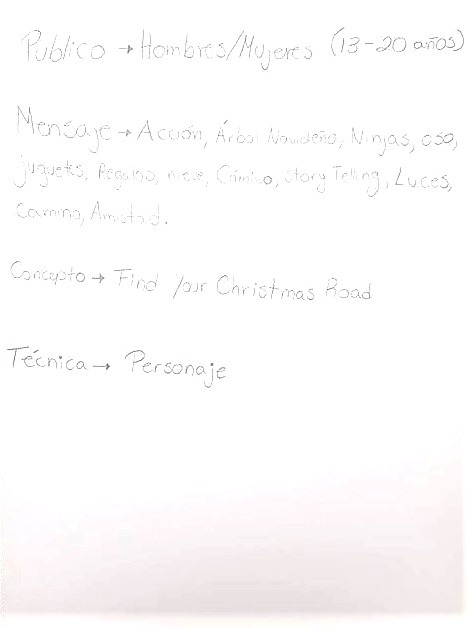 Publico → Hombres/Mujeres (13-20 años)
Mensaje → Acción, Árbol Navideño, Ninjas, oso,
juguetes, Regalos, nieve, Cómico, Story Telling, Luces,
Camino, Amistad.
Concepto → Find Your Christmas Road
Técnica → Personaje